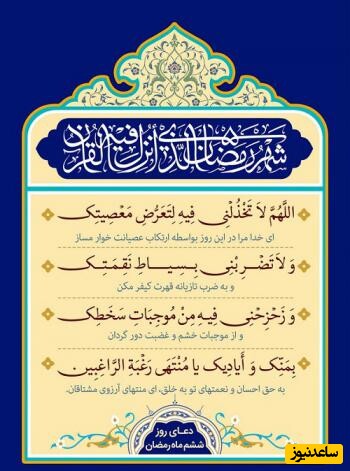 شَهْرُ رَمَضَانَ الَّذِي أُنْزِلَ فِيهِ الْقُرْآنُ
اللَّهُمَّ لاَ تَخْذُلْنِی فِیهِ لِتَعَرُّضِ مَعْصِیَتِکَ
ای خدا مرا در این روز بواسطه ارتکاب عصیانت خوار مساز
وَ لاَ تَضْرِبْنِی بِسِیَاطِ نَقِمَتِکَ
و به ضرب تازیانه قهرت کیفر مکن
وَ زَحْزِحْنِی فِیهِ مِنْ مُوجِبَاتِ سَخَطِکَ
و از موجبات خشم و غضبت دور گردان
بِمَنِّکَ وَ أَیَادِیکَ یَا مُنْتَهَى رَغْبَةِ الرَّاغِبِینَ
به حق احسان و نعمتهای تو به خلق، ای منتهای آرزوی مشتاقان.
دعای روز
ششم ماه رمضان
ساعدنیوز